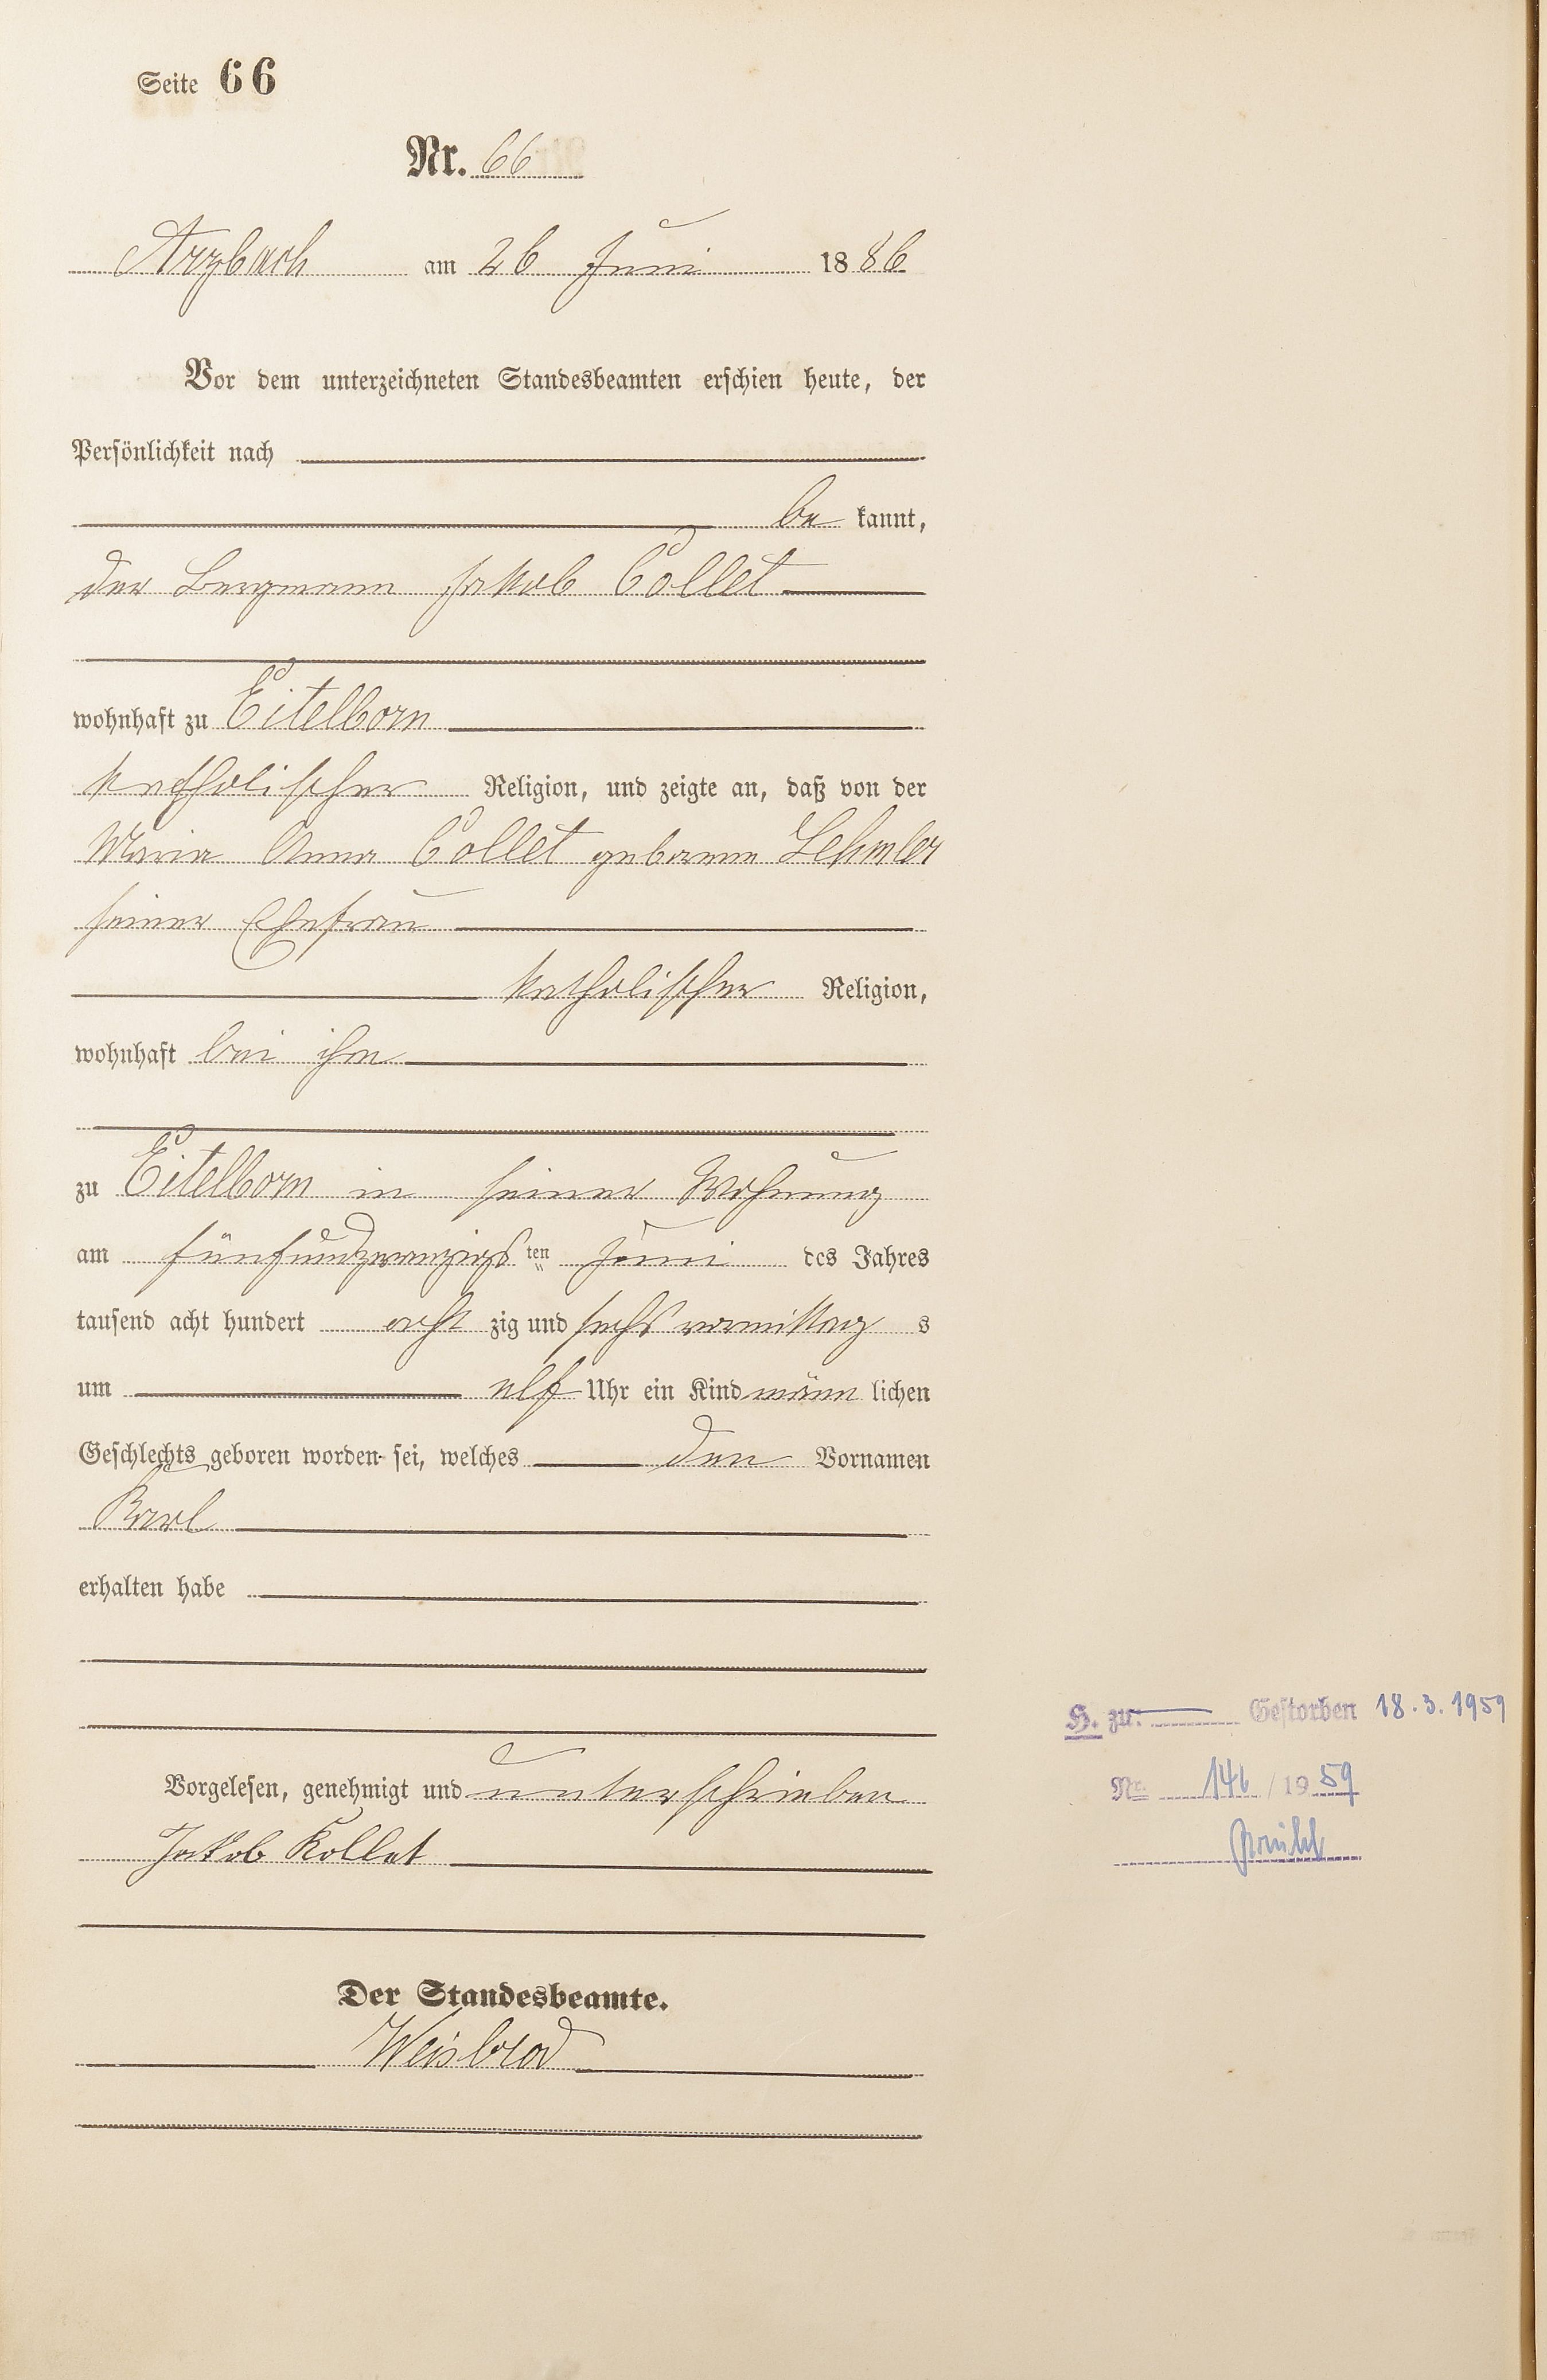 Seite 66
Nr. 66
Arzbach am 26 Juni 1886
Vor dem unterzeichneten Standesbeamten erschien heute, der
Persönlichkeit nach
be kannt,
der Bergmann Jakob Collet
wohnhaft zu Eitelborn
katholischer Religion, und zeigte an, daß von der
Maria Anna Collet geborene Lehmler
seiner Ehefrau
katholischer Religion,
wohnhaft bei ihm
zu Eitelborn in seiner Wohnung
am fünfundzwanzigs ten Juni des Jahres
tausend acht hundert acht zig und sechs vormittag s
um elf Uhr ein Kind männ lichen
Geschlechts geboren worden sei, welches den Vornamen
Karl
erhalten habe
Vorgelesen, genehmigt und unterschrieben
Jakob Kollet
Der Standesbeamte.
Weisbrod
H. zu: Gestorben 18.3.1959
Nr. 146 / 1959